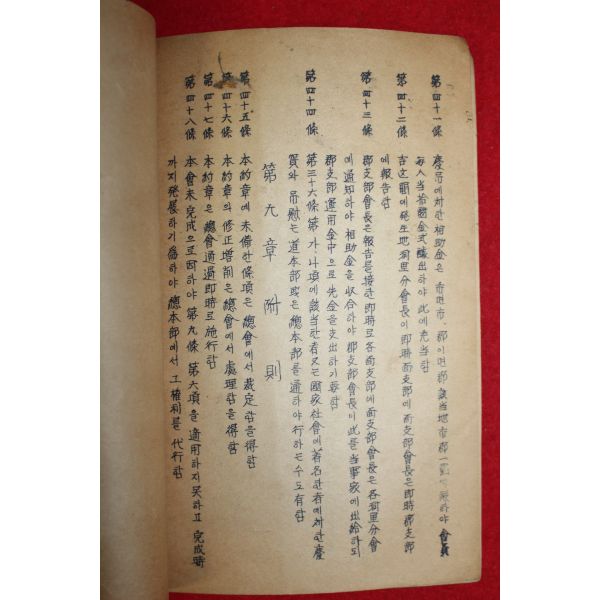 第四十一條 慶弔에対한 相助金은 市面市、郡이면郡 該当地市郡一圓 하야 會員
每人当拾圓金式醵出하야 此에充当함
第四十二條 吉凶 에発生地洞里分會長이 即時面支部에 面支部會長은 即時郡支部
에報告함
第四十三條 郡支部會長은 報告를接한即時로 各面支部에 面支部會長은 各洞里分會
에通知하야 相助金을收合하야 郡支部會長이 此를 当事家에 出給하되
郡支部運用金中으로 先金을支出하기 함
第四十四條 第三十六條 第 가、나項에該当한者又는 國家社會에著名한者에対한慶
賀와 吊慰는 道本部 또는 總本部를 通하야行하는수도有함
第九章 附則
第四十五條 本約章에 未備한條項은 總會에서 裁定함을得함
第四十六條 本約章의 修正增削은 總會에서 處理함을得함
第四十七條 本約章은 總會通過即時로 施行함
第四十八條 本會未完成으로因하야 第九條 第六項을 適用하지못하고 完成時
까지 発展하기 爲하야 總本部에서 工權利를 代行함